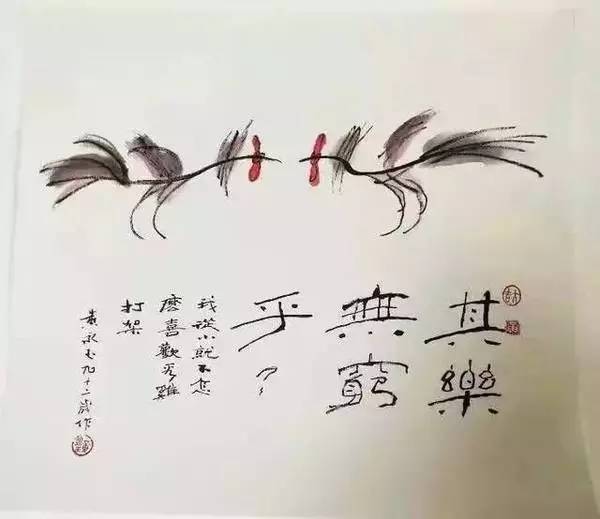 其樂
無窮
乎？
我從小就不怎
麼喜歡看雞
打架
黃永玉九十二歲作